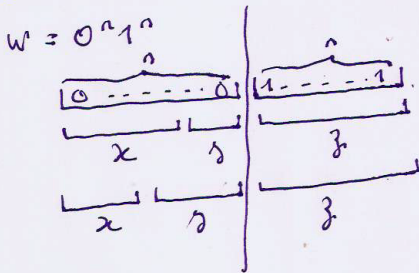 w = 0ⁿ1ⁿ
n n
0 - - - - - - 0 1 - - - - - 1
x y z
x y z